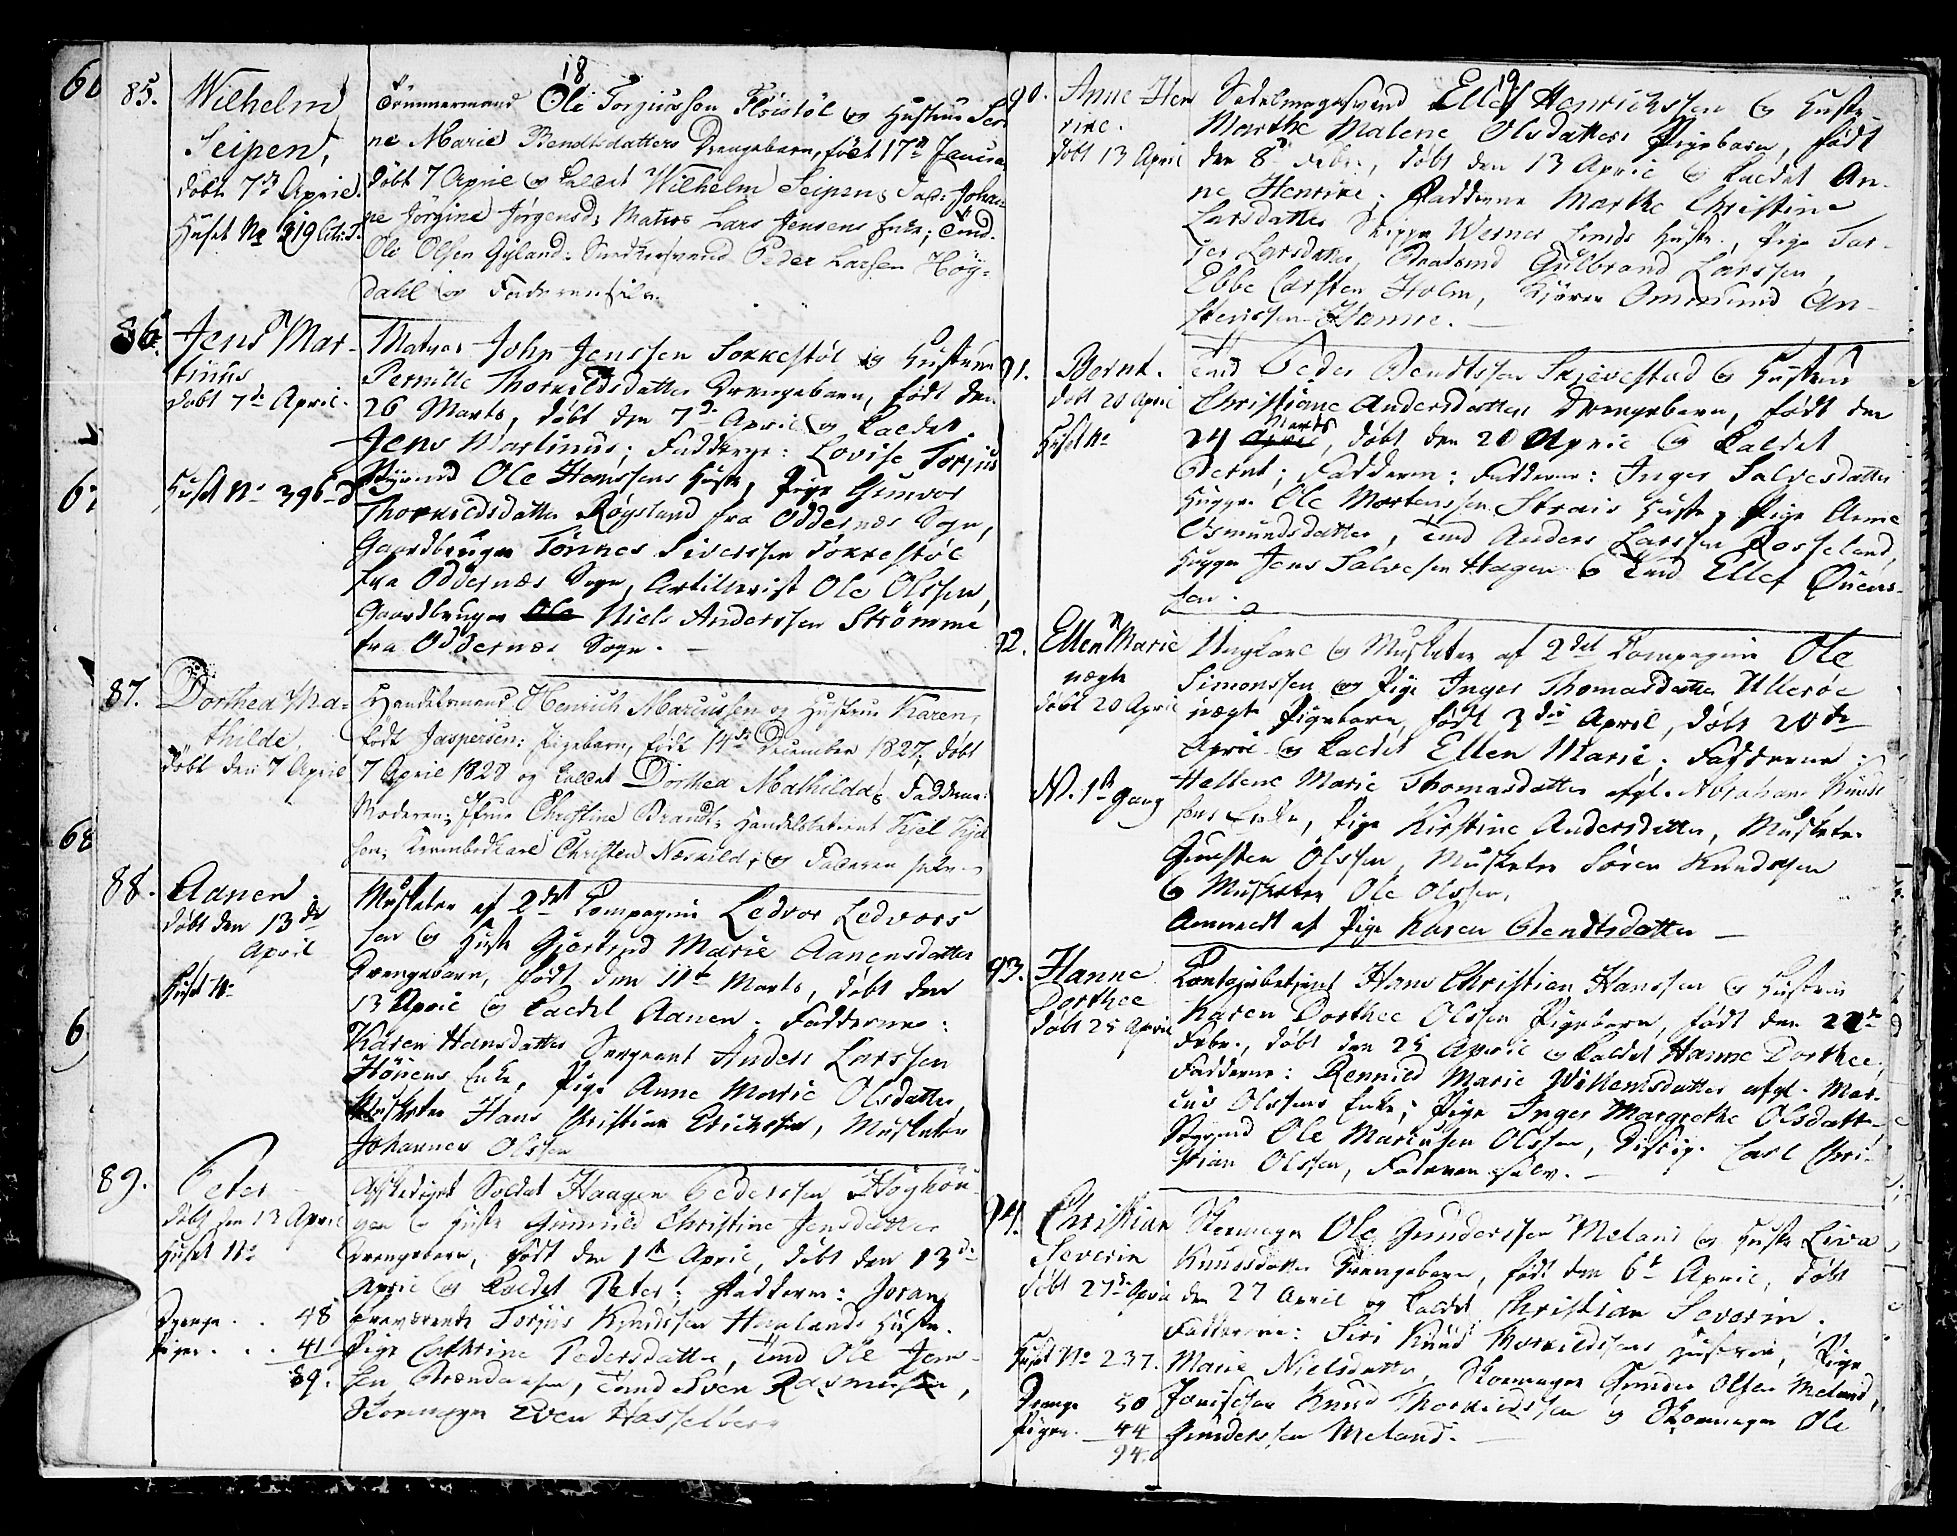 18
85. Wilhelm
Seipen,
döbt 7d April.
Huset No 319 Litr. T.
Tömmermand Ole Torjussen Flöistöl og Hustrue Seri-
ne Marie Bendtsdatters Drengebarn, föd 17d Januar
döbt 7 April og kaldet Wilhelm Seipen; Fad: Johan-
ne Jörgine Jörgensd. Matros Lars Jensens Enke; Tmd.
Ole Olsen Gyland: Snedkersvend Peder Larsen Höy-
dahl og Faderen selv.
86. Jens Mar-
tinus
Döbt 7d April.
Huset No 396 d
Matros John Jenssen Sokkestöl og Hustrue
Pernille Thorkildsdatter Drengebarn, födt den
26 Marts, döbt den 7d April og kaldet
Jens Martinus; Fadderne: Lovise Torjus
Ole Hanssens Hust, Pige Gunvor
Thorkildsdatter Røgsland fra Oddernæs Sogn,
Gaardbruger Tönnes Siverssen Sokkestöl
fra Oddernæs Sogn, Artillerist Ole Olssen,
Gaardbruger Ole Niels Anderssen Strömme
fra Oddernæs Sogn. —
87. Dorthea Ma-
thilde,
Döbt den 7 April
Handelsmand Henrich Marcussen og Hustrue Karen,
födt Jaspersen: Pigebarn, födt 14de December 1827, döbt
7 April 1828 og kaldet Dorthea Mathilda; Fadderne:
Moderen; Jfrue Christine Brandt; Handelsbetient Kjel Kjel
sen, Krambodkarl Christen Næskild; og Faderen selv.
88. Aanen
döbt den 13de
April
Huset No
Musketer af 2det Compagnie Ledvor Ledvors
sen og Hust Gjertrud Marie Aanensdatter
Drengebarn, födt den 11te Marts, döbt den
13 April og kaldet Aanen. Fadderne:
Karen Hansdatter Sergeant Anders Larssen
Höyens Enke, Pige Anne Marie Olsdatter
Musketer Hans Christian Erichsen, Musketer
Johannes Olssen
89. Peter
döbt den 13 April
Huset No
Drenge . . 48
Piger . . . 41
89.
Afskediget Soldat Haagen Pederssen Höghou-
gen og Hust Gunnild Christine Jensdatter
Drengebarn, födt den 1te April, döbt den 13de
April og kaldet Peter; Fadderne: Joran
fraværende Torjus Knudssen Haalands Hustr.
Pige Cathrine Pedersdatter, Tmd Ole Jens-
sen Brændaasen, Tmd Sven Rasmussen,
Skomager Even Hasselberg
19
90. Anne Hen
rike.
Döbt 13 April
Sadelmagersvend Ellef Henrichssen og Hustr
Marthe Malene Olsdatters Pigebarn, födt
den 8de Febr., döbt den 13 April og kaldet An-
ne Henrike; Fadderne Marthe Christine
Larsdatter Skipper Werner Hust., Pige Tar-
jer Larsdatter, Gulbrand Larssen,
Ebbe Carsten Holm, Ommund An-
91. Bernt.
döbt 20 April
Huset No
Tmd Peder Bendtssen Skievestad og Hustrue
Christiane Andersdatters Drengebarn, födt den
24 Marts April, döbt den 20 April og kaldet
Bernt; Fadderne; Fadderne: Inger Salvesdatter
Hugger Ole Mortenssen Strais Hustr, Pige Anne
Osmundsdatter, Tmd Anders Larssen Rosseland,
Hugger Jens Salvesen Hagen og Tmd Ellef
sen.
92. Ellen Marie
uægte
döbt 20 April
N. 1te Gang
Ungkarl og Musketer af 2det Compagnie Ole
Simonssen og Pige Inger Thomasdatter Ulleröe
uægte Pigebarn, födt 3die April, döbt 20de
April og kaldet Ellen Marie; Fadderne:
Hellene Marie Thomasdatter afgl. Abraham Knud
sens Enke, Pige Kirstine Andersdatter, Musketer
Olssen, Musketer Sören Knudssen
og Musketer Ole Olssen.
Ammedt af Pige Karen Bendtsdatter —
93. Hanne
Dorthee
döbt 25 April
Contoirbetjent Hans Christian Hanssen og Hustrue
Karen Dorthee Olssen Pigebarn, födt den 22de
Febr., döbt den 25 April og kaldet Hanne Dorthee,
Fadderne: Rennild Marie Willemsdatter afgl. Mar-
cus Olssens Enke; Pige Inger Margrethe Olsdatter
Ole Marcussen Olssen, Carl Chri-
stian Olssen, Faderen selv. —
94. Christian
Severin
döbt 27de April
Huset No 237.
Drenge 50
Piger. 44
94.
Skomager Ole Gunderssen Meland og Hustr Liva
Knudsdatter Drengebarn, födt den 6te April, döbt
den 27 April og kaldet Christian Severin.
Fadderne: Siri Knud Thorkildssens Hustrue, Pige
Marie Nielsdatter, Skomager Gunder Olssen Meland,
Knud Thorkildssen og Skomager Ole
Gunderssen Meland. —